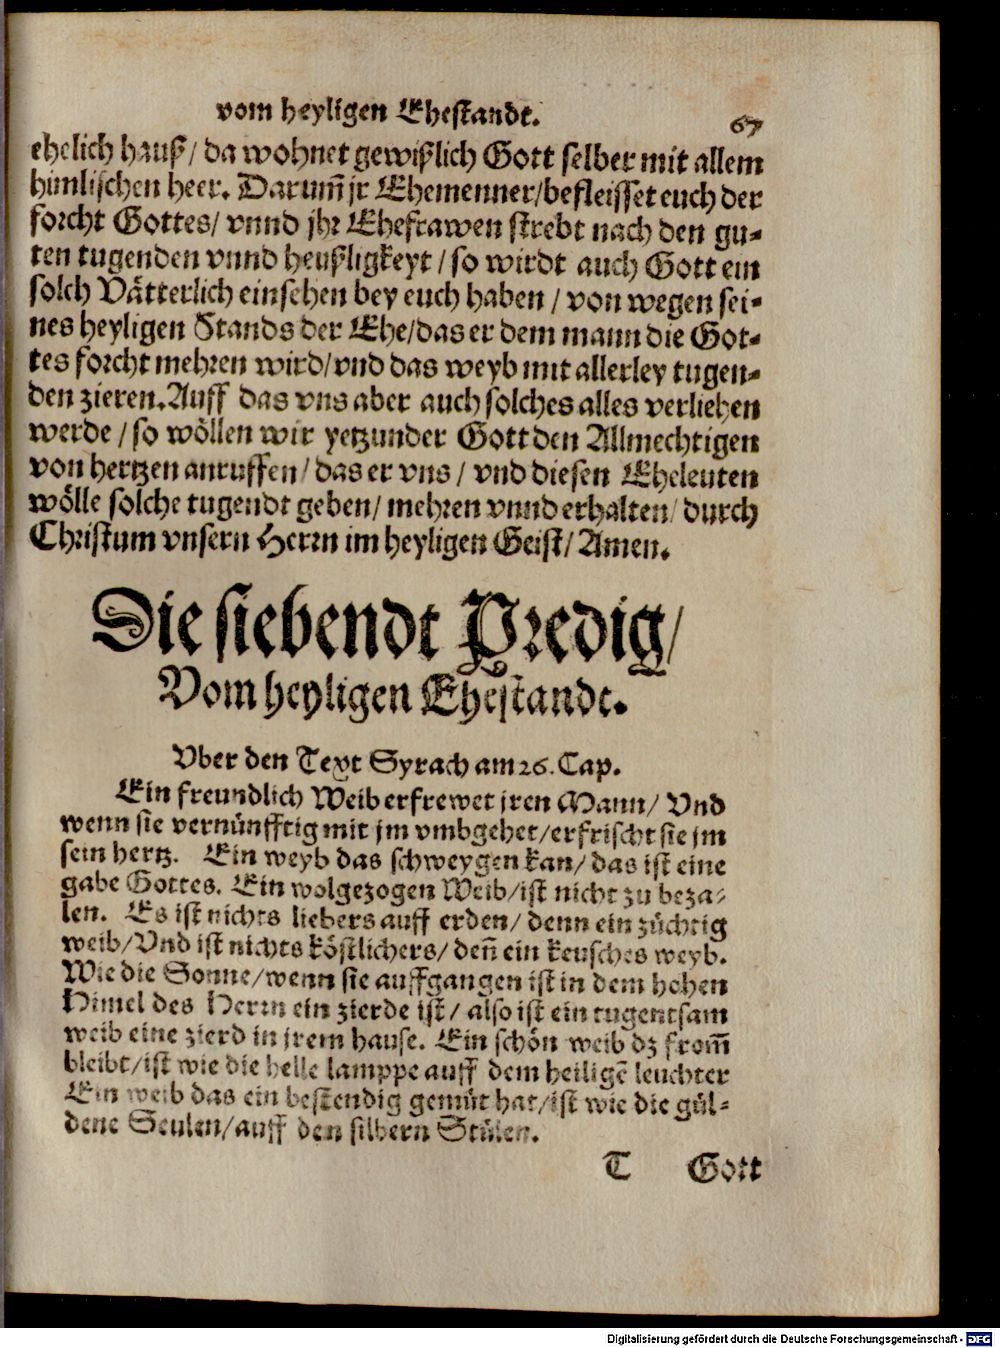 vom heyligen Ehestandt.
67
ehelich hauß/ da wohnet gewißlich Gott selber mit allem
himlischen heer. Darum̃ jr Ehemenner/befleisset euch der
forcht Gottes/ vnnd jhr Ehefrawen strebt nach den gu-
ten tugenden vnnd heußligkeyt/ so wirdt auch Gott ein
solch Vätterlich einsehen bey euch haben/ von wegen sei-
nes heyligen Stands der Ehe/das er dem mann die Got-
tes forcht mehren wird/vnd das weyb mit allerley tugen-
den zieren. Auff das vns aber auch solches alles verliehen
werde/ so wöllen wir yetzunder Gott den Allmechtigen
von hertzen anruffen/ das er vns/ vnd diesen Eheleuten
wölle solche tugendt geben/ mehren vnnd erhalten/ durch
Christum vnsern Herrn im heyligen Geist/ Amen.
Die siebendt Predig/
Vom heyligen Ehestandt.
Vber den Text Syrach am 26. Cap.
Ein freundlich Weib erfrewet jren Mann/ Vnd
wenn sie vernünfftig mit jm vmbgehet/erfrischt sie jm
sein hertz. Ein weyb das schweygen kan/ das ist eine
gabe Gottes. Ein wolgezogen Weib/ist nicht zu beza-
len. Es ist nichts liebers auff erden/ denn ein züchtig
weib/Vnd ist nichts köstlichers/ deñ ein keusches weyb.
Wie die Sonne/wenn sie auffgangen ist in dem hohen
Himel des Herrn ein zierde ist/ also ist ein tugentsam
weib eine zierd in jrem hause. Ein schön weib dz from̃
bleibt/ist wie die helle lamppe auff dem heiligẽ leuchter
Ein weib das ein bestendig gemüt hat/ist wie die gül-
dene Seulen/auff den silbern Stülen.
T Gott
Digitalisierung gefördert durch die Deutsche Forschungsgemeinschaft - DFG